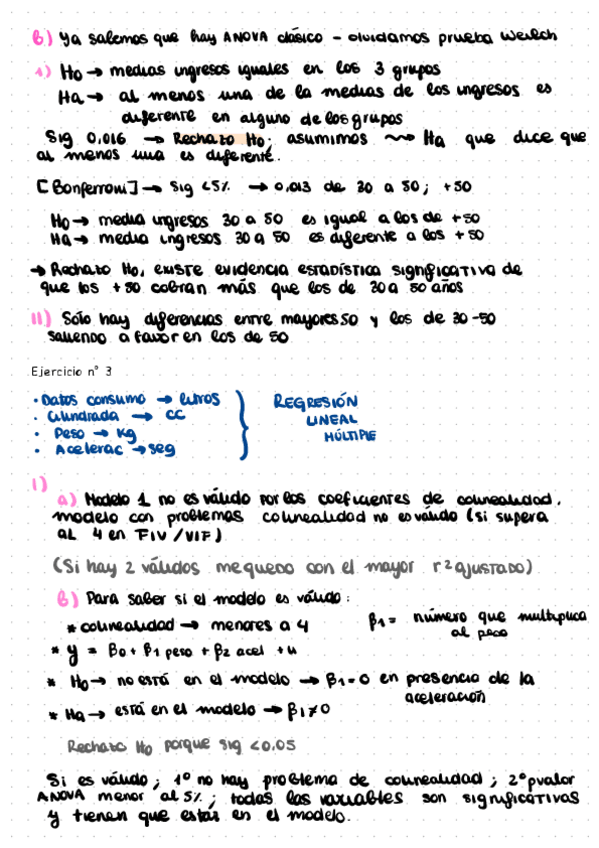 b) Ya sabemos que hay ANOVA clásico - olvidamos prueba Welch
1) Ho → medias ingresos iguales en los 3 grupos
Ha → al menos una de la medias de los ingresos es
diferente en alguno de los grupos
Sig 0,016 → Rechazo Ho; asumimos ~> Ha que dice que
al menos una es diferente.
[Bonferroni] → Sig <5% → 0,013 de 30 a 50; +50
Ho → media ingresos 30 a 50 es igual a los de +50
Ha → media ingresos 30 a 50 es diferente a los +50
→ Rechazo Ho, existe evidencia estadística significativa de
que los +50 cobran más que los de 30 a 50 años
11) Sólo hay diferencias entre mayores 50 y los de 30-50
saliendo a favor en los de 50
Ejercicio nº 3
• Datos consumo → litros
• Cilindrada → CC
• Peso → Kg
• Acelerac → seg
REGRESIÓN
LINEAL
MÚLTIPLE
1)
a) Modelo 1 no es válido por los coeficientes de colinealidad.
modelo con problemas colinealidad no es válido (si supera
al 4 en FIV/VIF)
(Si hay 2 válidos me quedo con el mayor r² ajustado)
b) Para saber si el modelo es válido:
* colinealidad → menores a 4
β1 = número que multiplica
al peso
* y = β0 + β1 peso + β2 acel + u
* Ho → no está en el modelo → β1=0 en presencia de la
aceleración
* Ha → está en el modelo → β1≠0
Rechazo Ho porque sig <0,05
Si es válido; 1º no hay problema de colinealidad; 2º pvalor
ANOVA menor al 5%; todas las variables son significativas
y tienen que estar en el modelo.